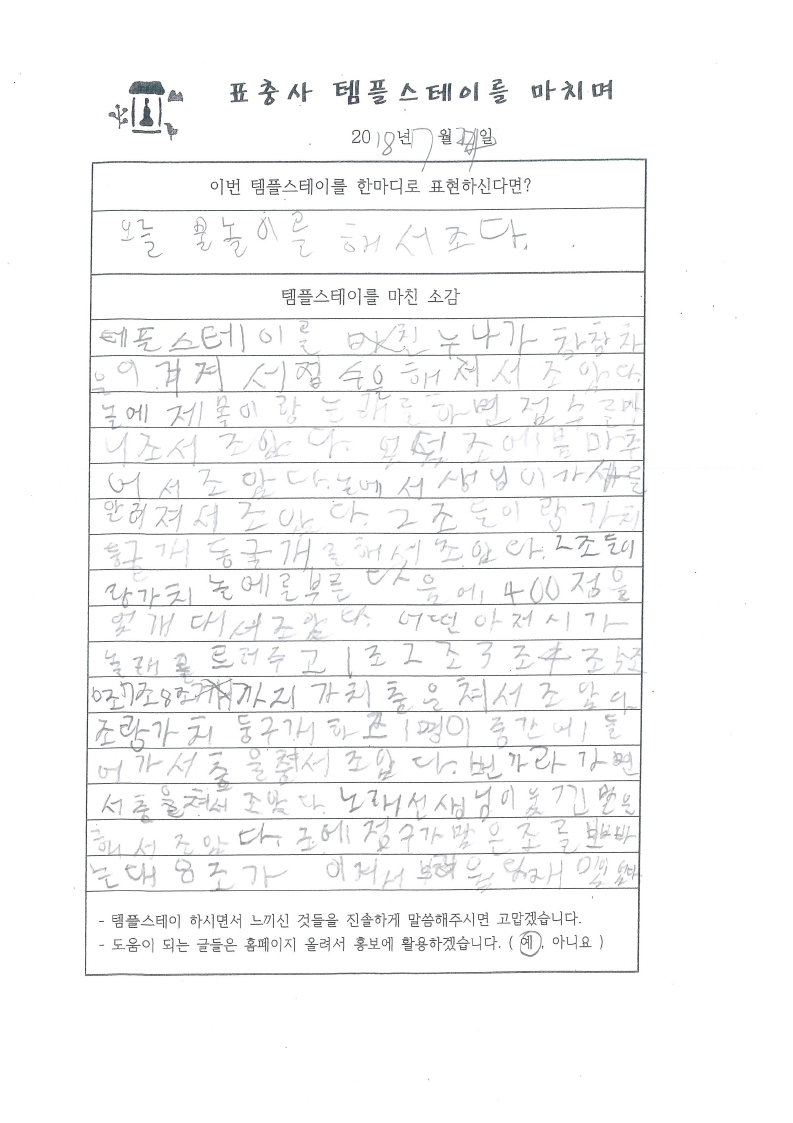 표충사 템플스테이를 마치며
2018년 7월 일
이번 템플스테이를 한마디로 표현하신다면?
오늘 물놀이를 해서조다.
템플스테이를 마친 소감
테플스테이를 누나가
해져서 조았다.
놀에 제목이랑 하면 점수를
니조서 조았다. 조에 마추
어서조았다.놀에서 생님이가
알려져서 조았다. 그조들이랑 가치
둥굴개 둥굴개를해서 조았다. 그조들이
랑가치 놀에를부른 다음에 400점을
얻개 대서조았다. 어떤 아저시가
놀래를 트러주고 1조 2조 3조 4조 5조
까지 가치 춤을쳐서 조았다
조랑가치 둥구개 하고 1명이 중간에 들
어가서 춤을춰서 조았다. 번가라 가면
서 춤을쳐서 조았다. 노래선생님이 웃긴 멀은
해서 조았다. 조에 점수가 많은 조를 뽀바
는대 8조가 이져서
- 템플스테이 하시면서 느끼신 것들을 진솔하게 말씀해주시면 고맙겠습니다.
- 도움이 되는 글들은 홈페이지 올려서 홍보에 활용하겠습니다. ( 예 , 아니요 )